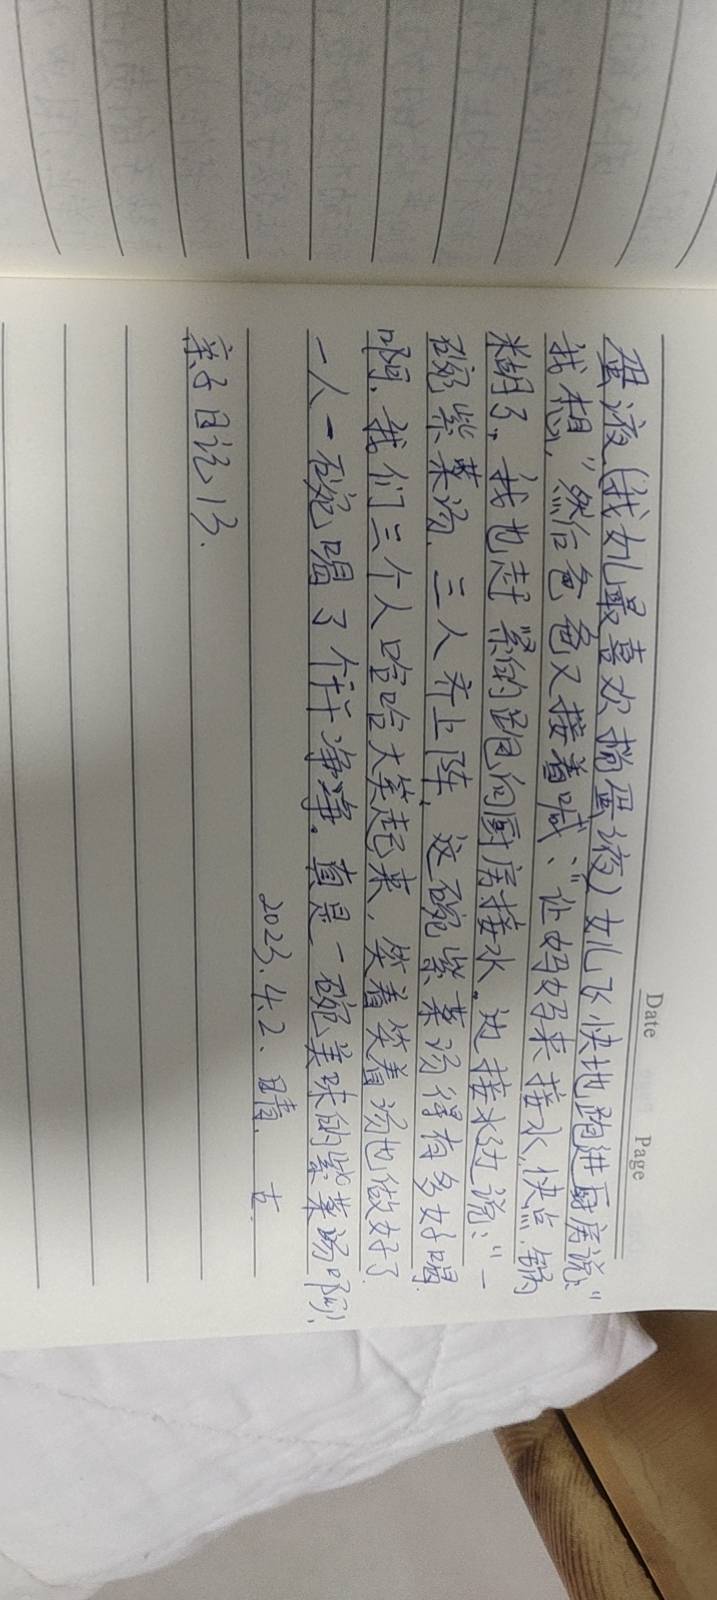 Date Page
蛋液(我女儿最喜欢搅蛋液)女儿飞快地跑进厨房说:"
我想,"然后爸爸又接着喊:"让妈妈来接水,快点,锅
糊了,我也赶紧的跑向厨房接水。边接水边说:"一
碗紫菜汤,三人齐上阵,这碗紫菜汤得有多好喝
啊,我们三个人哈哈大笑起来,笑着笑着汤也做好了
一人一碗喝了个干净净。真是一碗美味的紫菜汤啊!
2023.4.2、晴.
亲子日记13.